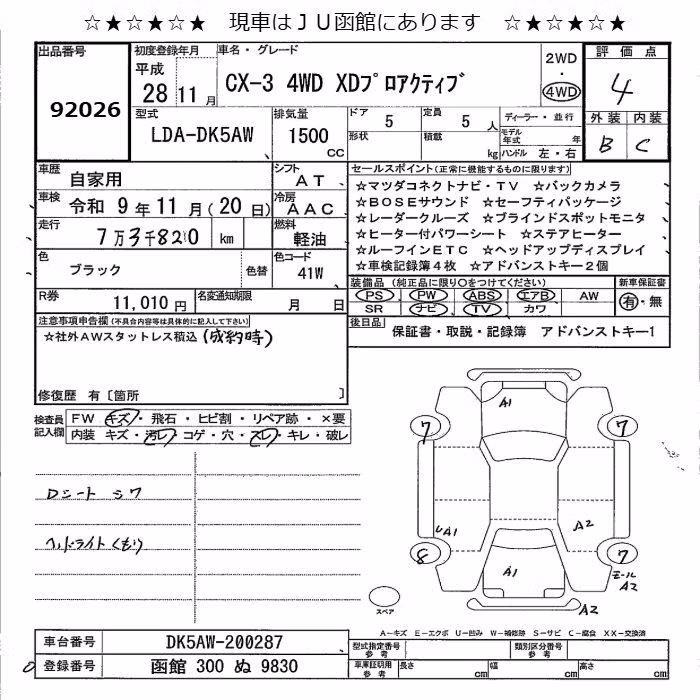 ☆★☆★☆★ 現車はJU函館にあります ☆★☆★☆★
出品番号
92026
初度登録年月
平成
28 11月
車名・グレード
CX-3 4WD XDプロアクティブ
2WD
・
4WD
評価点
4
外装 内装
B C
型式
LDA-DK5AW
排気量
1500
cc
ドア
5
形状
定員
5 人
積載
kg
ディーラー・並行
モデル年式 年
ハンドル 左・右
車歴
自家用
シフト
AT
車検
令和 9年 11月(20日)
冷房
AAC
走行
7万3千820 km
燃料
軽油
色
ブラック
色替
色コード
41W
R券
11,010円
名変通知期限
月 日
セールスポイント(正常に機能するものに限ります)
☆マツダコネクトナビ・TV ☆バックカメラ
☆BOSEサウンド ☆セーフティパッケージ
☆レーダークルーズ ☆ブラインドスポットモニタ
☆ヒーター付パワーシート ☆ステアヒーター
☆ルーフインETC ☆ヘッドアップディスプレイ
☆車検記録簿4枚 ☆アドバンストキー2個
装備品(純正品に限り〇をつけてください)
PS PW ABS エアB AW
SR ナビ TV カワ
新車保証書
有・無
後日品
保証書・取説・記録簿 アドバンストキー1
注意事項申告欄(不具合内容等は具体的に記入して下さい)
☆社外AWスタットレス積込(成約時)
修復歴 有〔箇所 〕
検査員記入欄
FW キズ・飛石・ヒビ割・リペア跡・×要
内装 キズ・汚レ・コゲ・穴・スレ・キレ・破レ
Dシート シワ
ヘッドライトくもり
A1
7 7
A1 A2
8 7
A1
モールA2
A2
スペア
A-キズ E-エクボ U-凹み W-補修跡 S-サビ C-腐食 XX-交換済
車台番号
DK5AW-200287
登録番号
函館 300 ぬ 9830
型式指定番号参考
類別区分番号参考
車庫証明用参考
長さ cm 幅 cm 高さ cm